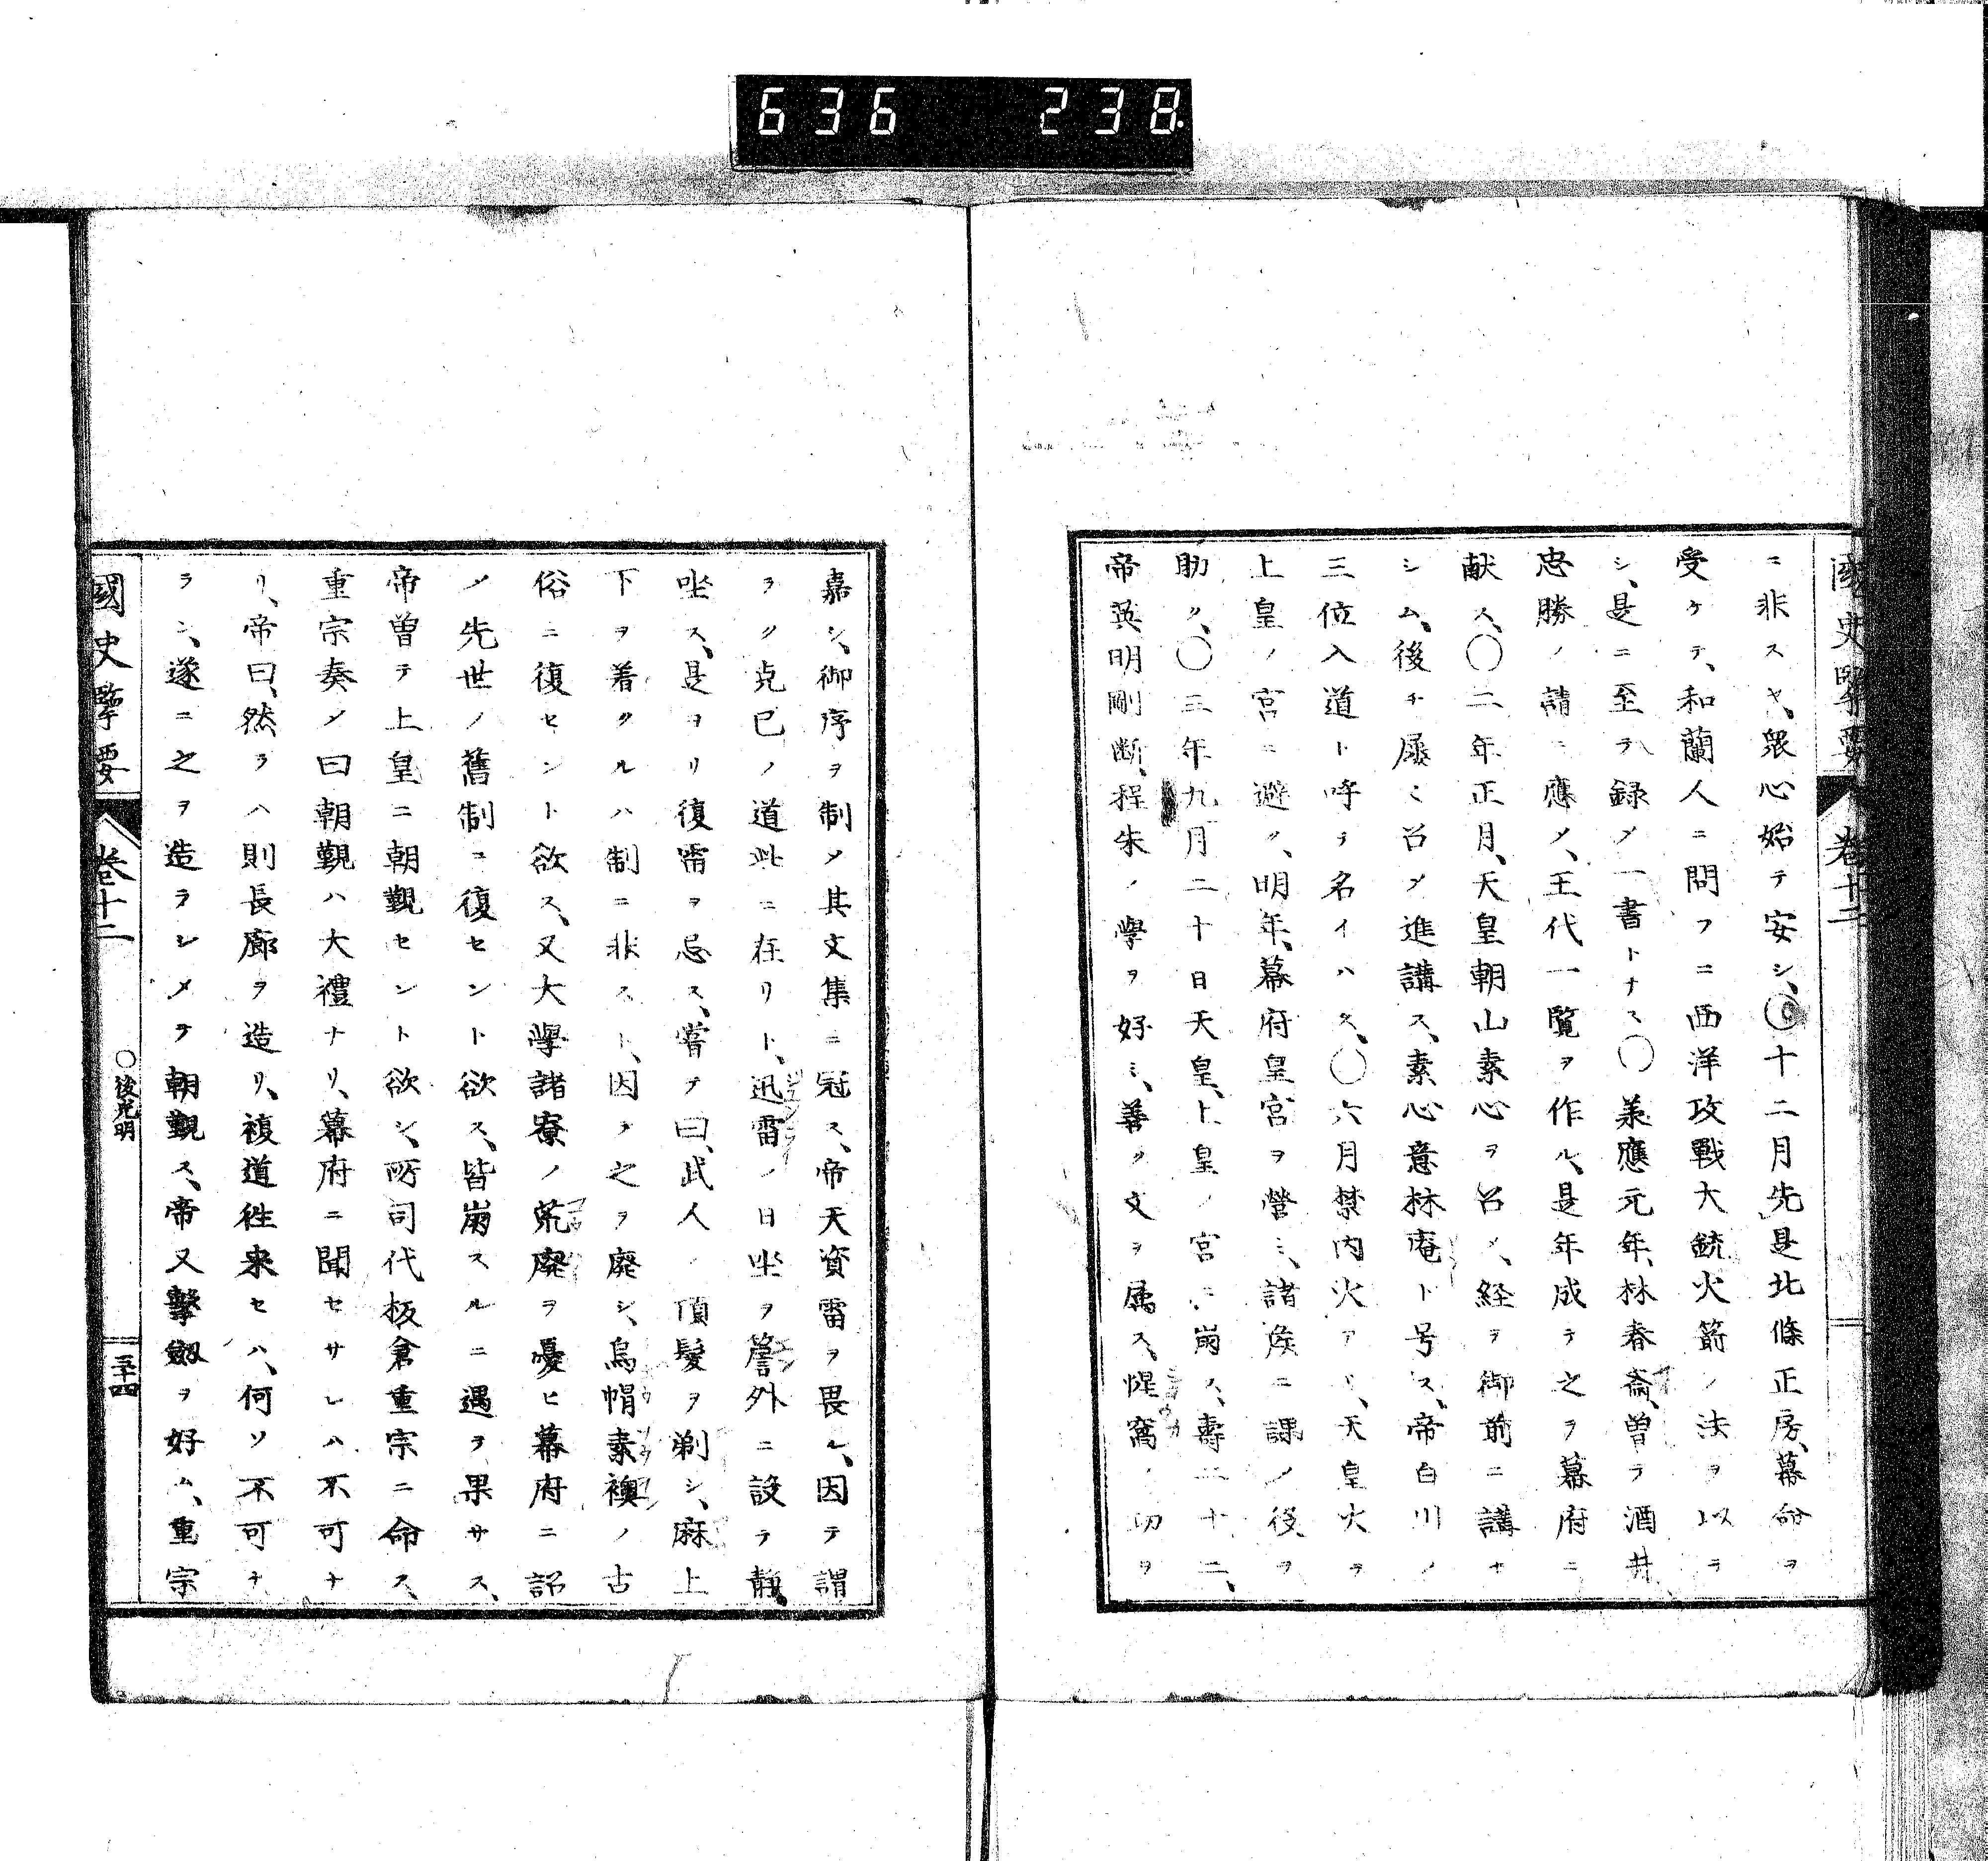 636 238
國史擥要 卷十二
ニ非スヤ、衆心始テ安シ、〇十二月先是北條正房、幕命ヲ
受ケテ、和蘭人ニ問フニ西洋攻戰大銃火箭ノ法ヲ以テ
シ、是ニ至テ録メ一書トナス〇羕應元年、林春斎、曽テ酒井
忠勝ノ請ニ應メ、王代一覧ヲ作ル、是年成テ之ヲ幕府ニ
献ス、〇二年正月、天皇朝山素心ヲ召メ、経ヲ御前ニ講サ
シム、後チ屡〻召メ進講ス、素心意林庵ト号ス、帝白川ノ
三位入道ト呼テ名イハス、〇六月禁内火アリ、天皇火ヲ
上皇ノ宮ニ避ク、明年、幕府皇宮ヲ營ミ、諸侯ニ課メ役ヲ
助ク、〇三年九月二十日天皇、上皇ノ宮ニ崩ス、壽二十二、
帝英明剛断、程朱ノ學ヲ好ミ、善ク文ヲ属ス、惺窩ノ功ヲ
嘉シ、御序ヲ制メ其文集ニ冠ス、帝天資雷ヲ畏ル、因テ謂
ヲク克已ノ道此ニ在リト、迅雷ノ日坐ヲ簷外ニ設テ静
坐ス、是ヨリ復雷ヲ忌ス、嘗テ曰、武人ノ頂髮ヲ剃シ、麻上
下ヲ着クルハ制ニ非スト、因テ之ヲ廢シ、烏帽素襖ノ古
俗ニ復セント欲ス、又大學諸寮ノ荒廢ヲ憂ヒ幕府ニ詔
ノ先世ノ舊制ニ復セント欲ス、皆崩スルニ遇ヲ果サス、
帝曽テ上皇ニ朝覲セント欲シ、所司代板倉重宗ニ命ス、
重宗奏ノ曰朝覲ハ大禮ナリ、幕府ニ聞セサレハ不可ナ
リ、帝曰、然ラハ則長廊ヲ造リ、複道徃来セハ、何ソ不可ナ
ラン、遂ニ之ヲ造ラシメテ朝覲ス、帝又擊劔ヲ好ム、重宗
國史擥要 卷十二 〇後光明 三十四